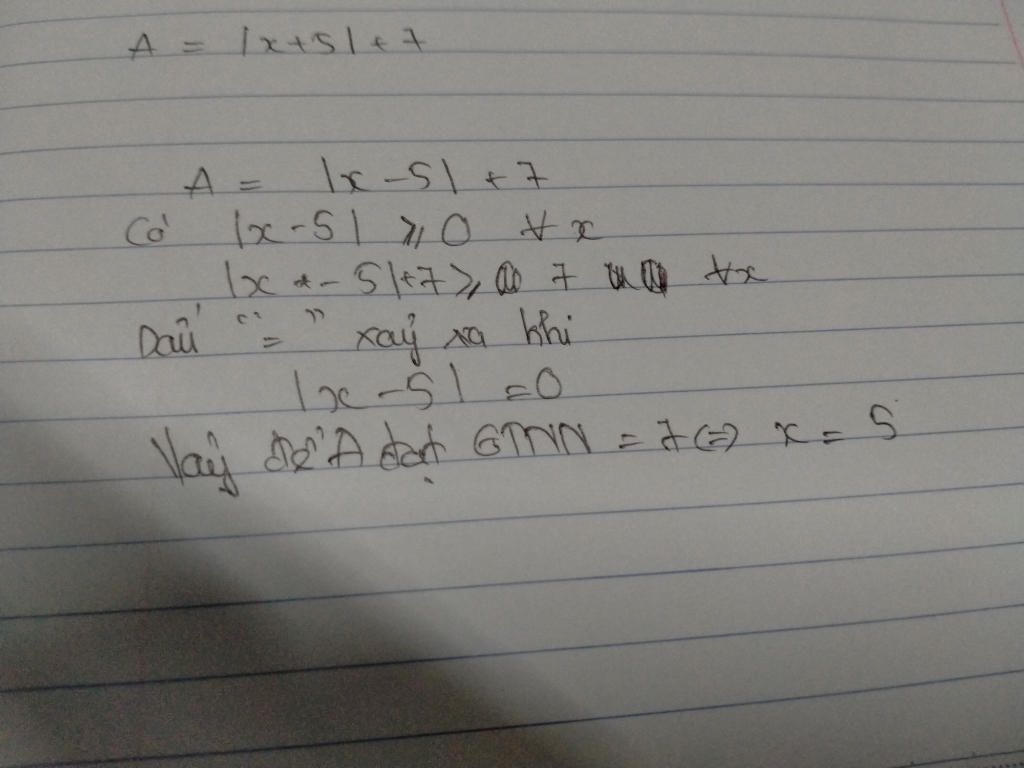 A = |x+5|+7
A = |x-5|+7
Có |x-5| ≥ 0 ∀x
|x - 5|+7 ≥ 7 ∀x
Dấu "=" xảy xa khi
|x-5| =0
Vậy để A đạt GTNN = 7 ⇔ x = 5